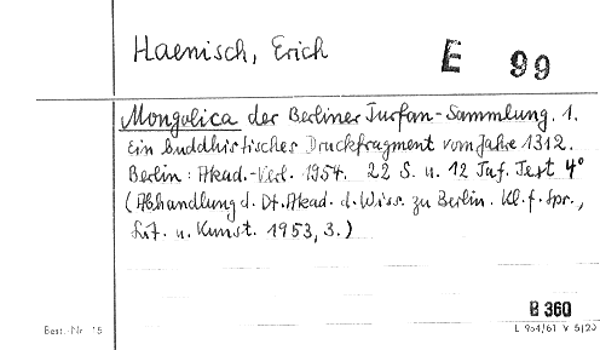 Haenisch, Erich
E 99
Mongolica der Berliner Turfan-Sammlung. 1.
Ein buddhistisches Druckfragment vom Jahre 1312.
Berlin: Akad.-Verl. 1954. 22 S. u. 12 Taf. Text 4°
(Abhandlung d. Dt. Akad. d. Wiss. zu Berlin. Kl. f. Spr.,
Lit. u. Kunst. 1953, 3.)
B 360
Best.-Nr. 15
L 904/61 V 5/20